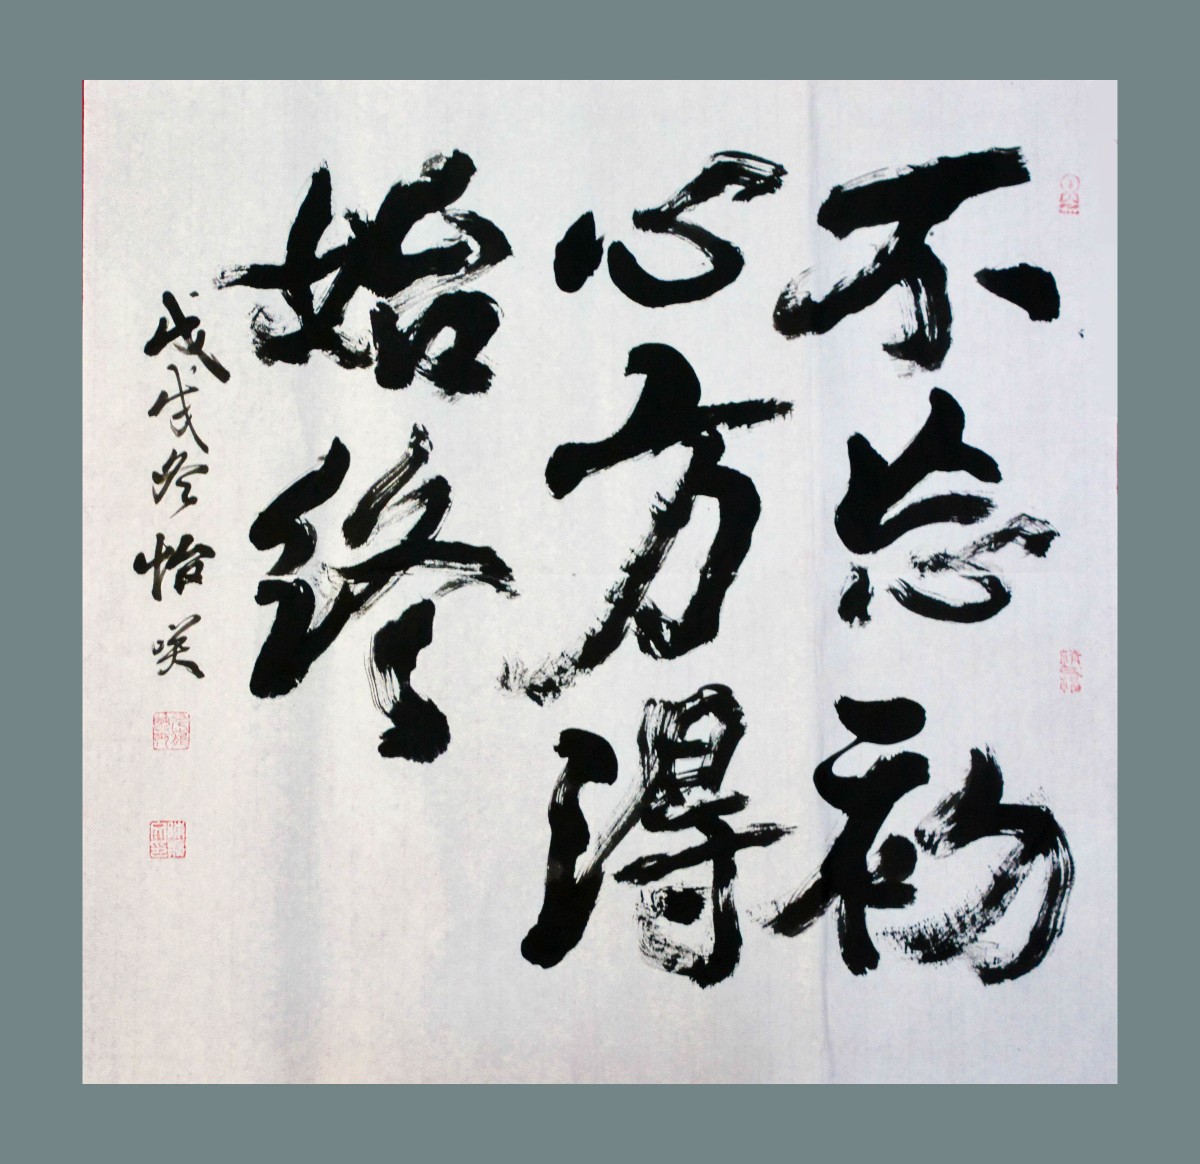 不忘初
心方得
始终
戊戌冬怡笑